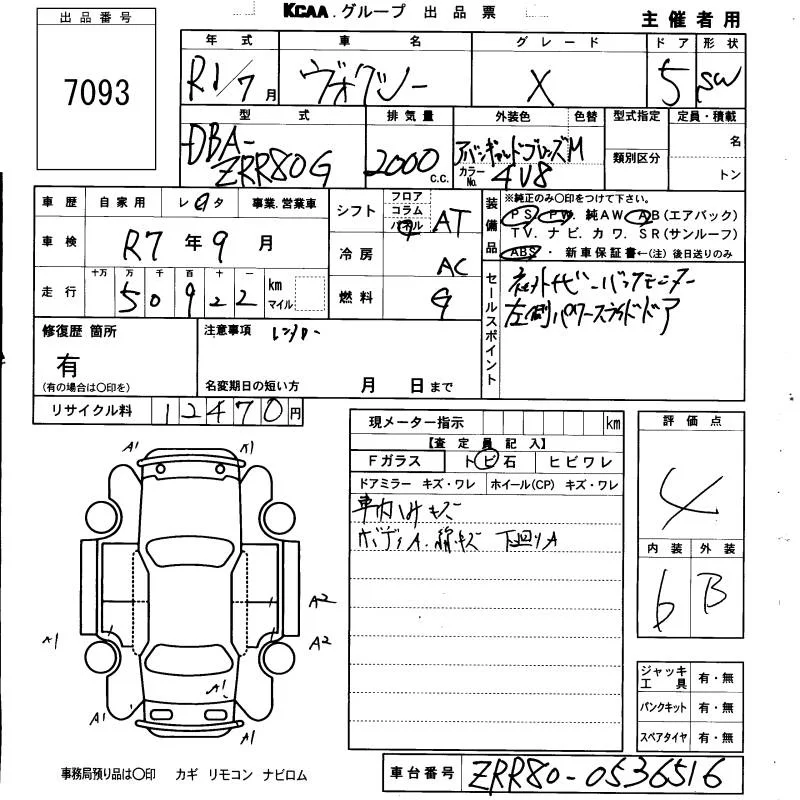 KCAA.グループ 出品票
主催者用
出品番号
7093
年式 車名 グレード ドア 形状
R1/7月 ヴォクシー X 5 SW
型式 排気量 外装色 色替 型式指定 定員・積載
DBA-ZRR80G 2000 c.c. アバンギャルドブロンズM
カラーNo. 4V8
類別区分
名
トン
車歴 自家用 レタ 事業.営業車
車検 R7年9月
走行 十万 万 千 百 十 一
50922 km マイル
シフト フロア コラム パネル AT
冷房 AC
燃料 G
装備品
※純正のみ〇印をつけて下さい。
PS. PW. 純AW AB(エアバック)
TV. ナビ. カワ. SR(サンルーフ)
ABS・新車保証書←(注)後日送りのみ
セールスポイント
バックモニター
左側パワースライドドア
修復歴 箇所
有
(有の場合は〇印を)
注意事項 レンタカー
名変期日の短い方 月 日まで
リサイクル料 12470円
現メーター指示 km
【査定員記入】
Fガラス トビ石 ヒビワレ
ドアミラー キズ・ワレ ホイール(CP) キズ・ワレ
車内ハケキズ
ボディA.線キズ 下回りA
評価点
4
内装 外装
6 B
A1 A1
A2
A1 A2
A1
A1 A1
ジャッキ工具 有・無
パンクキット 有・無
スペアタイヤ 有・無
事務局預り品は〇印 カギ リモコン ナビロム
車台番号 ZRR80-0536516